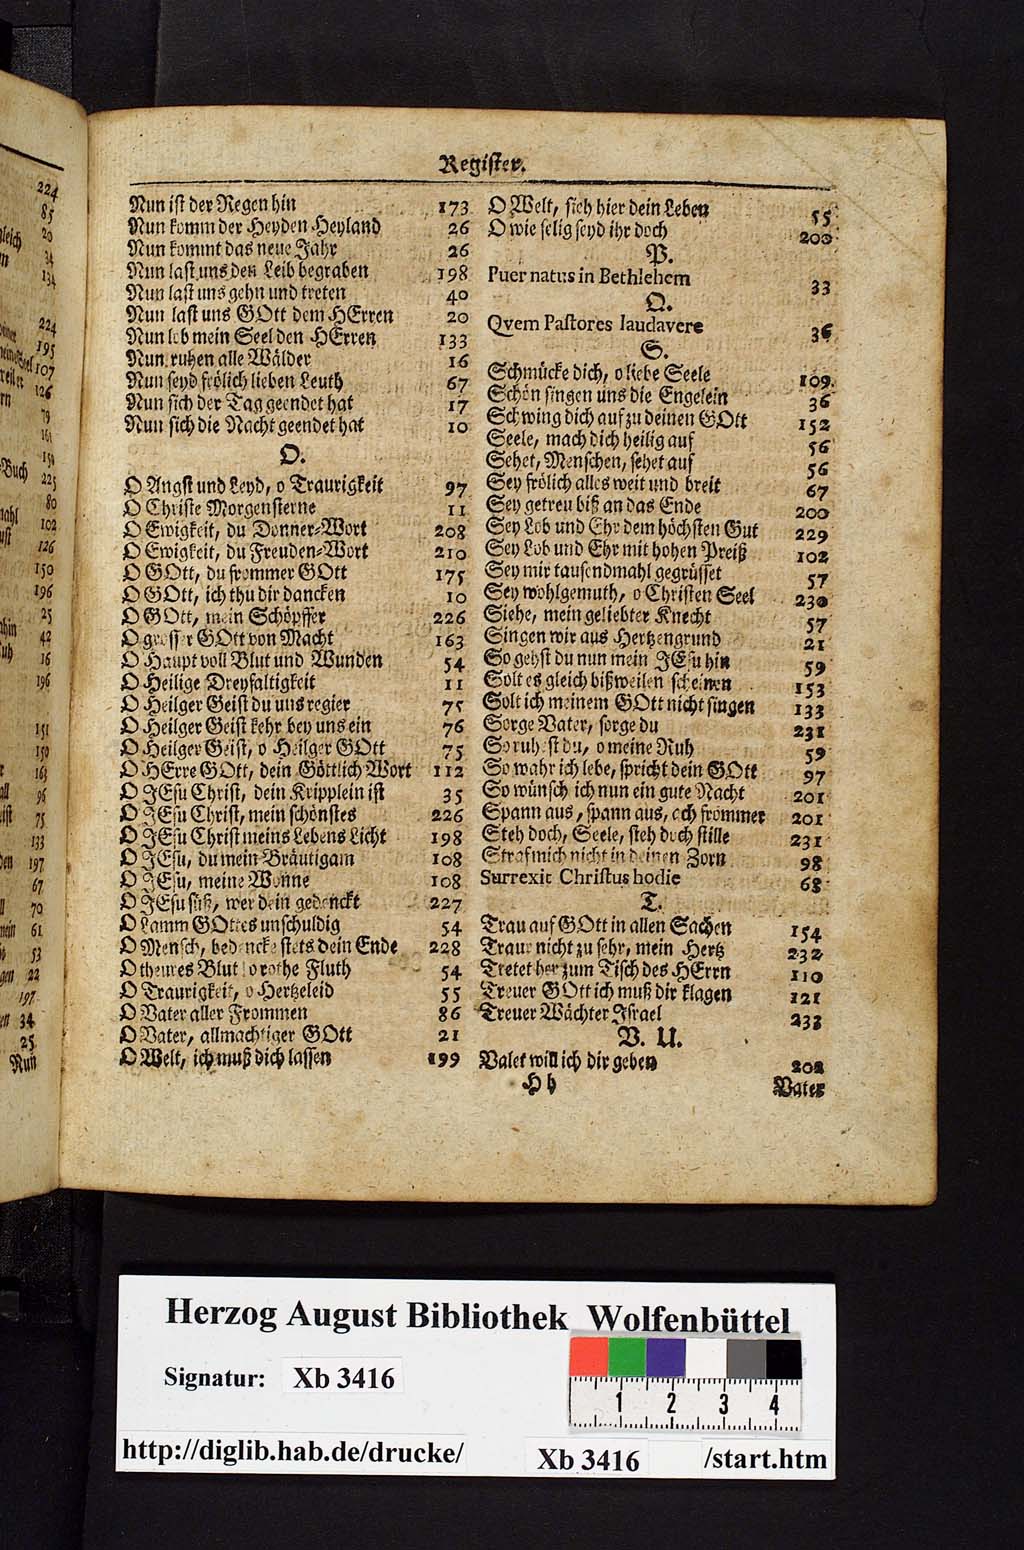 Register.
Nun ist der Regen hin 173
Nun komm der Heyden Heyland 26
Nun kommt das neue Jahr 26
Nun last uns den Leib begraben 198
Nun last uns gehn und treten 40
Nun last uns GOtt dem HErren 20
Nun lob mein Seel den HErren 133
Nun ruhen alle Wälder 16
Nun seyd frölich lieben Leuth 67
Nun sich der Tag geendet hat 17
Nun sich die Nacht geendet hat 10
O.
O Angst und Leyd, o Traurigkeit 97
O Christe Morgensterne 11
O Ewigkeit, du Donner-Wort 208
O Ewigkeit, du Freuden-Wort 210
O GOtt, du frommer GOtt 175
O GOtt, ich thu dir dancken 10
O GOtt, mein Schöpffer 226
O grosser GOtt von Macht 163
O Haupt voll Blut und Wunden 54
O Heilige Dreyfaltigkeit 11
O Heilger Geist du uns regier 75
O Heilger Geist kehr bey uns ein 76
O Heilger Geist, o Heilger GOtt 75
O HErre GOtt, dein Göttlich Wort 112
O JEsu Christ, dein Kripplein ist 35
O JEsu Christ, mein schönstes 226
O JEsu Christ meins Lebens Licht 198
O JEsu, du mein Bräutigam 108
O JEsu, meine Wonne 108
O JEsu süß, wer dein gedenckt 227
O Lamm GOttes unschuldig 54
O Mensch, bedencke stets dein Ende 228
O theures Blut! o rothe Fluth 54
O Traurigkeit, o Hertzeleid 55
O Vater aller Frommen 86
O Vater, allmachtiger GOtt 21
O Welt, ich muß dich lassen 199
O Welt, sieh hier dein Leben 55
O wie selig seyd ihr doch 200
P.
Puer natus in Bethlehem 33
Q.
Qvem Pastores laudavere 36
S.
Schmücke dich, o liebe Seele 109.
Schön singen uns die Engelein 36
Schwing dich auf zu deinen GOtt 152
Seele, mach dich heilig auf 56
Sehet, Menschen, sehet auf 56
Sey frölich alles weit und breit 67
Sey getreu biß an das Ende 200
Sey Lob und Ehr dem höchsten Gut 229
Sey Lob und Ehr mit hohen Preiß 102
Sey mir tausendmahl gegrüsset 57
Sey wohlgemuth, o Christen Seel 230
Siehe, mein geliebter Knecht 57
Singen wir aus Hertzengrund 21
So gehst du nun mein JEsu hin 59
Solt es gleich bißweilen scheinen 153
Solt ich meinem GOtt nicht singen 133
Sorge Vater, sorge du 231
So ruhest du, o meine Ruh 59
So wahr ich lebe, spricht dein GOtt 97
So wünsch ich nun ein gute Nacht 201
Spann aus, spann aus, ach frommer 201
Steh doch, Seele, steh doch stille 231
Straf mich nicht in deinen Zorn 98
Surrexit Christus hodie 68
T.
Trau auf GOtt in allen Sachen 154
Traure nicht zu sehr, mein Hertz 232
Tretet her zum Tisch des HErrn 110
Treuer GOtt ich muß dir klagen 121
Treuer Wächter Israel 233
V. U.
Valet will ich dir geben 202
H h
Vater
Herzog August Bibliothek Wolfenbüttel
Signatur: Xb 3416
1 2 3 4
http://diglib.hab.de/drucke/ Xb 3416 /start.htm